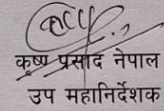 कृष्ण प्रसाद नेपाल
उप महानिर्देशक